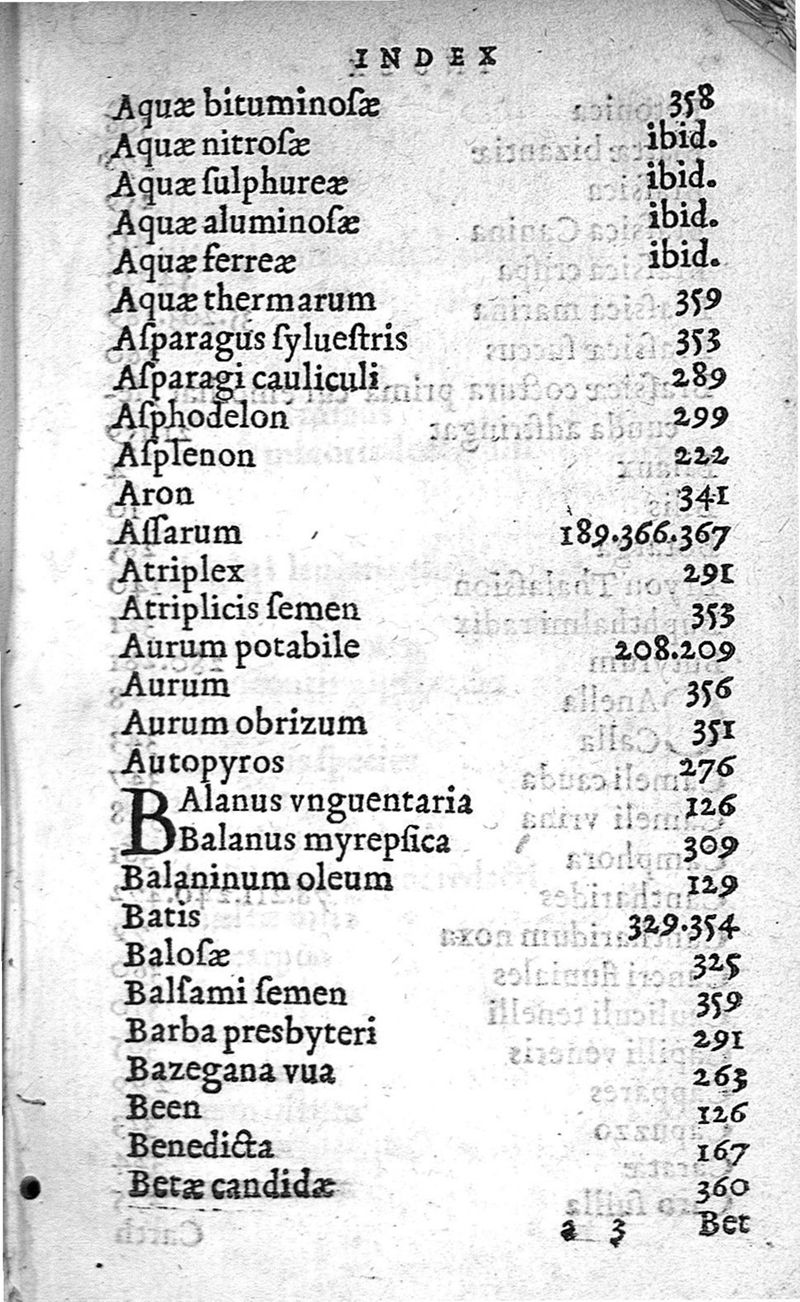 INDEX
Aquæ bituminoſæ 358
Aquæ nitroſæ ibid.
Aquæ ſulphureæ ibid.
Aquæ aluminoſæ ibid.
Aquæ ferreæ ibid.
Aquæ thermarum 359
Aſparagus ſylueſtris 353
Aſparagi cauliculi 289
Aſphodelon 299
Aſplenon 222
Aron 341
Aſſarum 189.366.367
Atriplex 291
Atriplicis ſemen 353
Aurum potabile 208.209
Aurum 356
Aurum obrizum 351
Autopyros 276
BAlanus vnguentaria 126
Balanus myrepſica 309
Balaninum oleum 129
Batis 329.354
Baloſæ 325
Balſami ſemen 359
Barba presbyteri 291
Bazegana vua 263
Been 126
Benedicta 167
Betæ candidæ 360
a 3 Bet